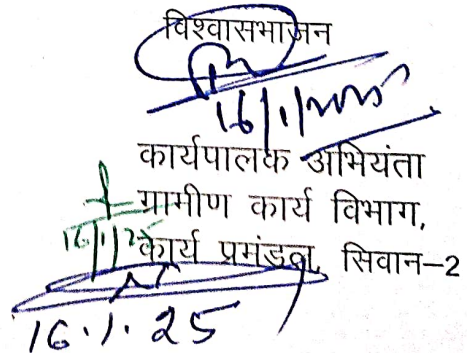 विश्वासभाजन
16/1/2025
कार्यपालक अभियंता
ग्रामीण कार्य विभाग,
16/1/25
कार्य प्रमंडल, सिवान–2
16.1.25